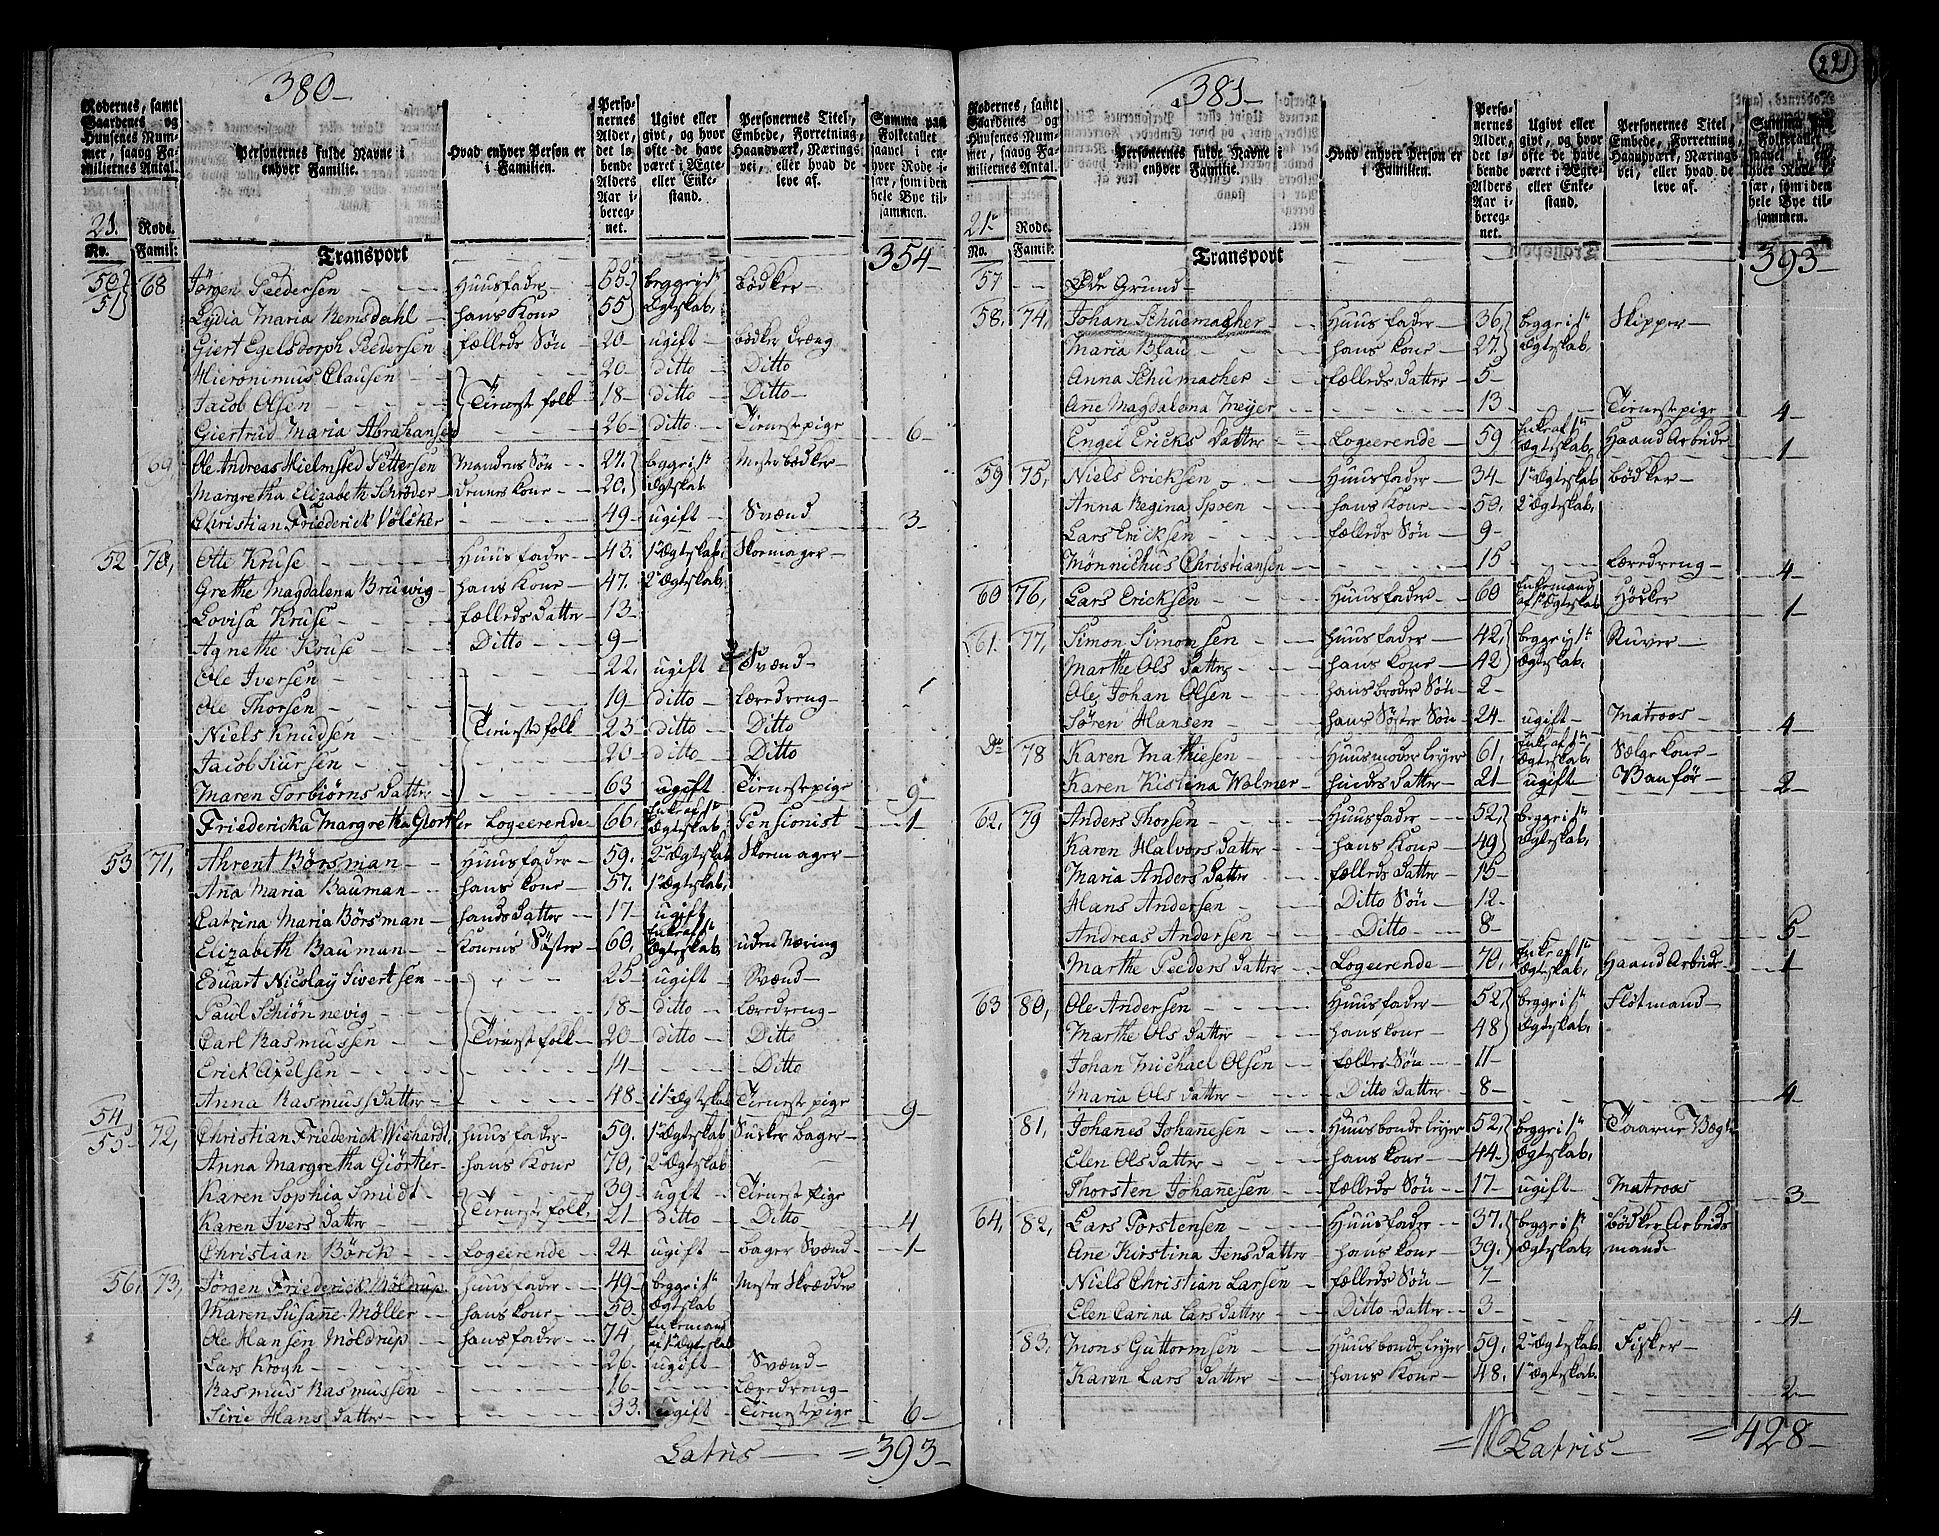 380
Rodernes, samt Gaardenes og Husenes Nummer, saavog Familiernes Antal.
Personernes fulde Navne i enhver Familie.
Hvad enhver Person er i Familien.
Personernes Alder, det løbende Alders Aar iberegnet.
Ugivt eller givt, og hvor ofte de have været i Ægte- eller Enkestand.
Personernes Titel, Embede, Forretning, Haandværk, Næringsvei, eller hvad de leve af.
Summa paa Folketallet saavel i enhver Rode især, som i den hele Bye tilsammen.
21. Rode.
No. Famil:
Transport 354
50 51 68 Jörgen Peedersen Huusfader 55 begge i 1te Bödker
Lydia Maria Remsdahl hans Kone 55 Ægteskab,
Giert Egelsdorph Peedersen fælleds Sön 20 ugift bödker dræng
Hieronimus Clausen 20 ditto Ditto
Jacob Olsen Tienestfolk 18 ditto Ditto
Giertrud Maria Abrahamsen 26 ditto Tienestpige 6
69 Ole Andreas Hielmsted Pettersen Mandens Sön 27 begge i 1te Mester bödker
Margretha Elizabeth Schröder dennes Kone 20 Ægteskab
Christian Friederick Völcker 49 ugift Svænd 3
52 70, Otte Kruse Huusfader 43. 1te Ægteskab, Skomager
Grethe Magdalena Bruwig hans Kone 47. 2de Ægteskab,
Lovisa Kruse fælleds datter 13
Agnethe Kruse Ditto 9
Ole Iversen 22. ugift Svænd
Ole Thorsen 19 ditto Læredreng
Niels Knudsen Tienestfolk 23 ditto Ditto
Jacob Siursen 20 ditto Ditto
Maren Torbiörns datter 63 ugift Tienestpige 9
Friedericka Margretha Giörtler Logeerende 66. Enke af 1te Ægteskab Pensionist 1
53 71, Ahrent Börsman Huusfader 59. 2de Ægteskab Skomager
Anna Maria Bauman hans Kone 57. 1te Ægteskab,
Catrina Maria Börsman hands datter 17 ugift
Elizabeth Bauman Konens Söster 60, Enke af 1te Ægteskab, uden Næring
Eduart Nicolay Sivertsen 25 ugift Svænd
Paul Schiönnevig 18 ditto Læredreng
Carl Rasmussen Tienestfolk 20 ditto Ditto
Erick Axelsen 14 Ditto
Anna Rasmuss datter 48 i 1te Ægteskab Tienestpige 9
54 55 72, Christian Friederick Wichardt, Huusfader 59. 1te Ægteskab Sukker bager
Anna Margretha Giörtler hans Kone 70, 2de Ægteskab
Karen Sophia Smidt Tienestfolk, 39 ugft Tienest pige
Karen Ivers datter 21 ditto Ditto 4
Christian Börch Logeerende 24 ugift bager Svænd 1
56. 73, Jörgen Friederick Möldrup huusfader 49 begge i 1te Mester Skrædder
Maren Susanne Möller hans Kone 50 Ægteskab
Ole Hansen Möldrup hans fader 74 Enkemand
Lars Krogh 26. ugift Svænd
Rasmus Rasmussen 16 Læredreng
Sirie Hans datter 33. ugift Tienestpige 6
Latris 393
381
221
Rodernes, samt Gaardenes og Husenes Nummer, saavog Familiernes Antal.
Personernes fulde Navne i enhver Familie.
Hvad enhver Person er i Familien.
Personernes Alder, det løbende Alders Aar iberegnet.
Ugivt eller givt, og hvor ofte de have været i Ægte- eller Enkestand.
Personernes Titel, Embede, Forretning, Haandværk, Næringsvei, eller hvad de leve af.
Summa paa Folketallet saavel i enhver Rode især, som i den hele Bye tilsammen.
21 Rode.
No. Famil:
Transport 393
57 Öde Grund
58. 74, Johan Schuemacher Huusfader 36, begge i 1te Skipper
Maria Blau hans Kone 27. Ægteskab,
Anna Schumacher fælleds datter 5
Anne Magdalena Meyer 13 Tienestpige 4
Engel Ericks datter Logeerende 59 Enke af 1te Ægteskab, Haand Arbeide 1
59 75, Niels Ericksen Huusfader 34 1te Ægteskab Bödker
Anna Regina Spoen hans Kone 50. 2de Ægteskab,
Lars Ericksen fælleds Sön 9
Mönnichus Christiansen 15 Læredreng 4
60 76, Lars Ericksen Huusfader 60 Enkemand af 1te Ægteskab Höcker 1
61. 77, Simon Simonsen Huusfader 42, begge i 1te
Marthe Ols datter hans Kone 42 Ægteskab,
Ole Johan Olsen hans broder Sön 2
Sören Hansen hans Söster Sön 24 ugift Matroos 4
Do 78 Karen Mathiesen Huusmoder leyer 61, Enke af 1te Ægteskab,
Karen Kistina Walmer hindes datter 21 ugift Vanför 2
62, 79 Anders Thorsen Huusfader 52, begge i 1te
Karen Halvors datter hans Kone 49 Ægteskab,
Maria Anders datter fælleds datter 15
Hans Andersen Ditto Sön 12
Andreas Andersen Ditto 8 5
Marthe Peeders datter Logeerende 70, Enke af 1te Ægteskab, Haand Arbeide 1
63 80, Ole Andersen Huusfader 52, begge i 1te Flötmand
Marthe Ols datter hans Kone 48 Ægteskab,
Johan Michael Olsen fælles Sön 11
Maria Ols datter Ditto datter 8 4
81, Johanes Johanesen Huusbonde leyer 52, begge i 1te
Elen Ols datter hans Kone 44 Ægteskab,
Thorsten Johannesen fælleds Sön 17 ugift Matroos 3
64, 82, Lars Torstensen Huusfader 37. begge i 1te Bödker Arbeids
Ane Kirstina Jens datter hans Kone 39. Ægteskab, mand
Niels Christian Larsen fælleds Sön 7
Elen Carina Lars datter Ditto datter 3 4
83. Mons Guttormsen Huusbonde leyer 59. 2de Ægteskab Fisker
Karen Lars datter hans Kone 48. 1te Ægteskab. 2
Latris 428